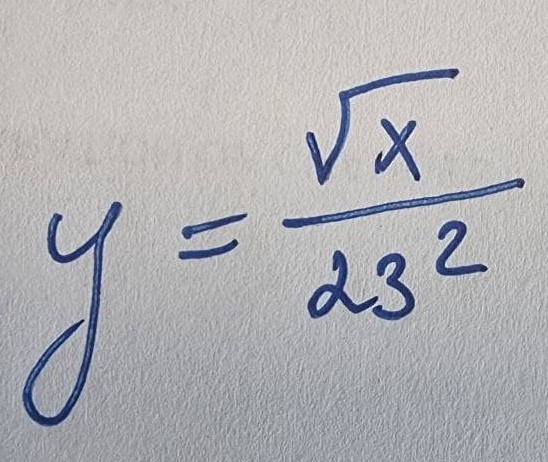 y = √x / 23²